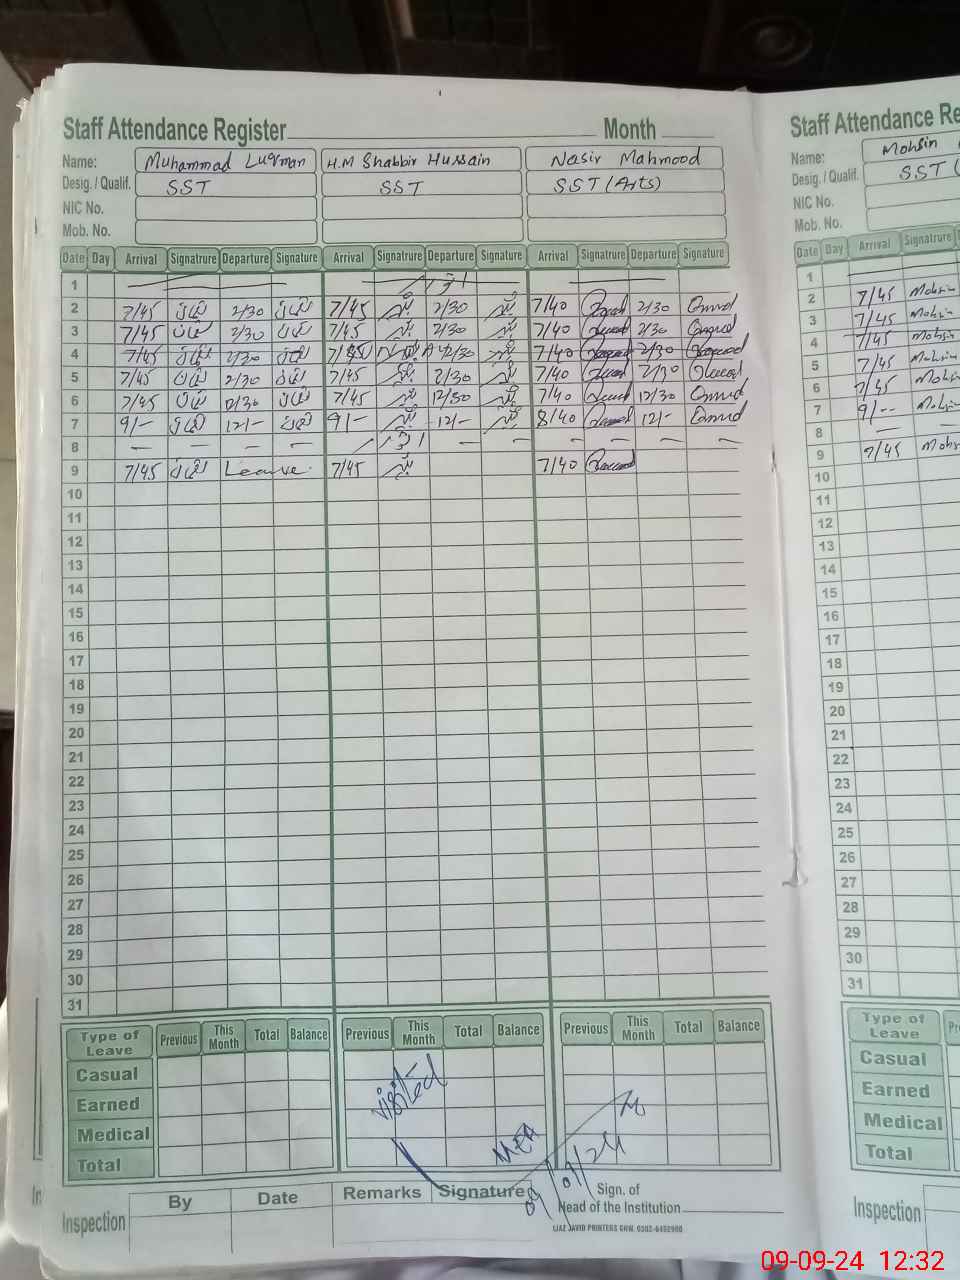 Staff Attendance Register Month
Name: Muhammad Luqman H.M Shabbir Hussain Nasir Mahmood
Desig. / Qualif. SST SST SST (Arts)
NIC No.
Mob. No.
Date Day Arrival Signatrure Departure Signature Arrival Signatrure Departure Signature Arrival Signatrure Departure Signature
1 اتوار
2 7/45 2/30 7/45 2/30 7/40 2/30
3 7/45 2/30 7/45 2/30 7/40 2/30
4 7/45 2/30 2/30 7/40 2/30
5 7/45 2/30 7/45 2/30 7/40 2/30
6 7/45 12/30 7/45 12/30 7/40 12/30
7 9/- 12/- 9/- 12/- 8/40 12/-
8 — — — — اتوار — — — — — —
9 7/45 Leave. 7/45 7/40
10
11
12
13
14
15
16
17
18
19
20
21
22
23
24
25
26
27
28
29
30
31
Type of Leave Previous This Month Total Balance Previous This Month Total Balance Previous This Month Total Balance
Casual
Earned
Medical
Total
visited
MEA
09/09/24
Inspection By Date Remarks Signature Sign. of Head of the Institution
IJAZ JAVID PRINTERS GRW. 0302-6452900
Staff Attendance Re
Name: Mohsin
Desig. / Qualif. SST (
NIC No.
Mob. No.
Date Day Arrival Signatrure
1
2 7/45 Mohsin
3 7/45 Mohsin
4 7/45 Mohsin
5 7/45 Mohsin
6 7/45 Mohsin
7 9/-- Mohsin
8 — —
9 7/45 Mohsin
10
11
12
13
14
15
16
17
18
19
20
21
22
23
24
25
26
27
28
29
30
31
Type of Leave
Casual
Earned
Medical
Total
Inspection
09-09-24 12:32